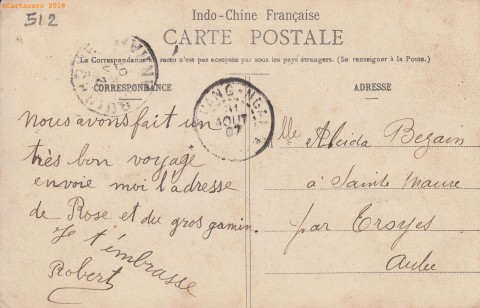 ©Cartacaro 2010
512
Indo-Chine Française
CARTE POSTALE
La Correspondance au recto n'est pas acceptée par tous les pays étrangers. (Se renseigner à la Poste.)
CORRESPONDANCE
ADRESSE
QUANG-NGAI
AOUT
07
Nous avons fait un
très bon voyage
envoie moi l'adresse
de Rose et du gros gamin.
Je t'embrasse
Robert
Mlle Alcida
à Sainte Maure
par Troyes
Aube